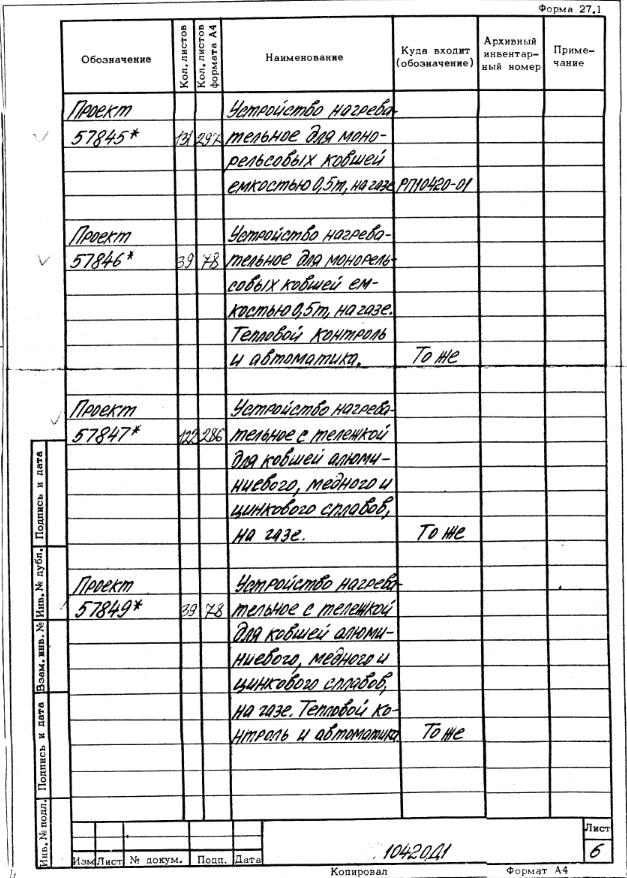 Форма 27.1
Обозначение
Кол. листов
Кол. листов формата А4
Наименование
Куда входит (обозначение)
Архивный инвентарный номер
Примечание
Проект Устройство нагрева-
57845* 131 297 тельное для моно-
рельсовых ковшей
емкостью 0,5т, на газе РП10420-01
Проект Устройство нагрева-
57846* 39 78 тельное для монорель-
совых ковшей ем-
костью 0,5т, на газе.
Тепловой контроль
и автоматика. То же
Проект Устройство нагрева-
57847* 122 286 тельное с тележкой
для ковшей алюми-
ниевого, медного и
цинкового сплавов,
на газе. То же
Проект Устройство нагрева-
57849* 39 78 тельное с тележкой
для ковшей алюми-
ниевого, медного и
цинкового сплавов,
на газе. Тепловой ко-
нтроль и автоматика То же
Подпись и дата
Инв. № дубл.
Взам. инв. №
Подпись и дата
Инв. № подл.
Изм Лист № докум. Подп. Дата
10420Д1
Лист
6
Копировал Формат А4